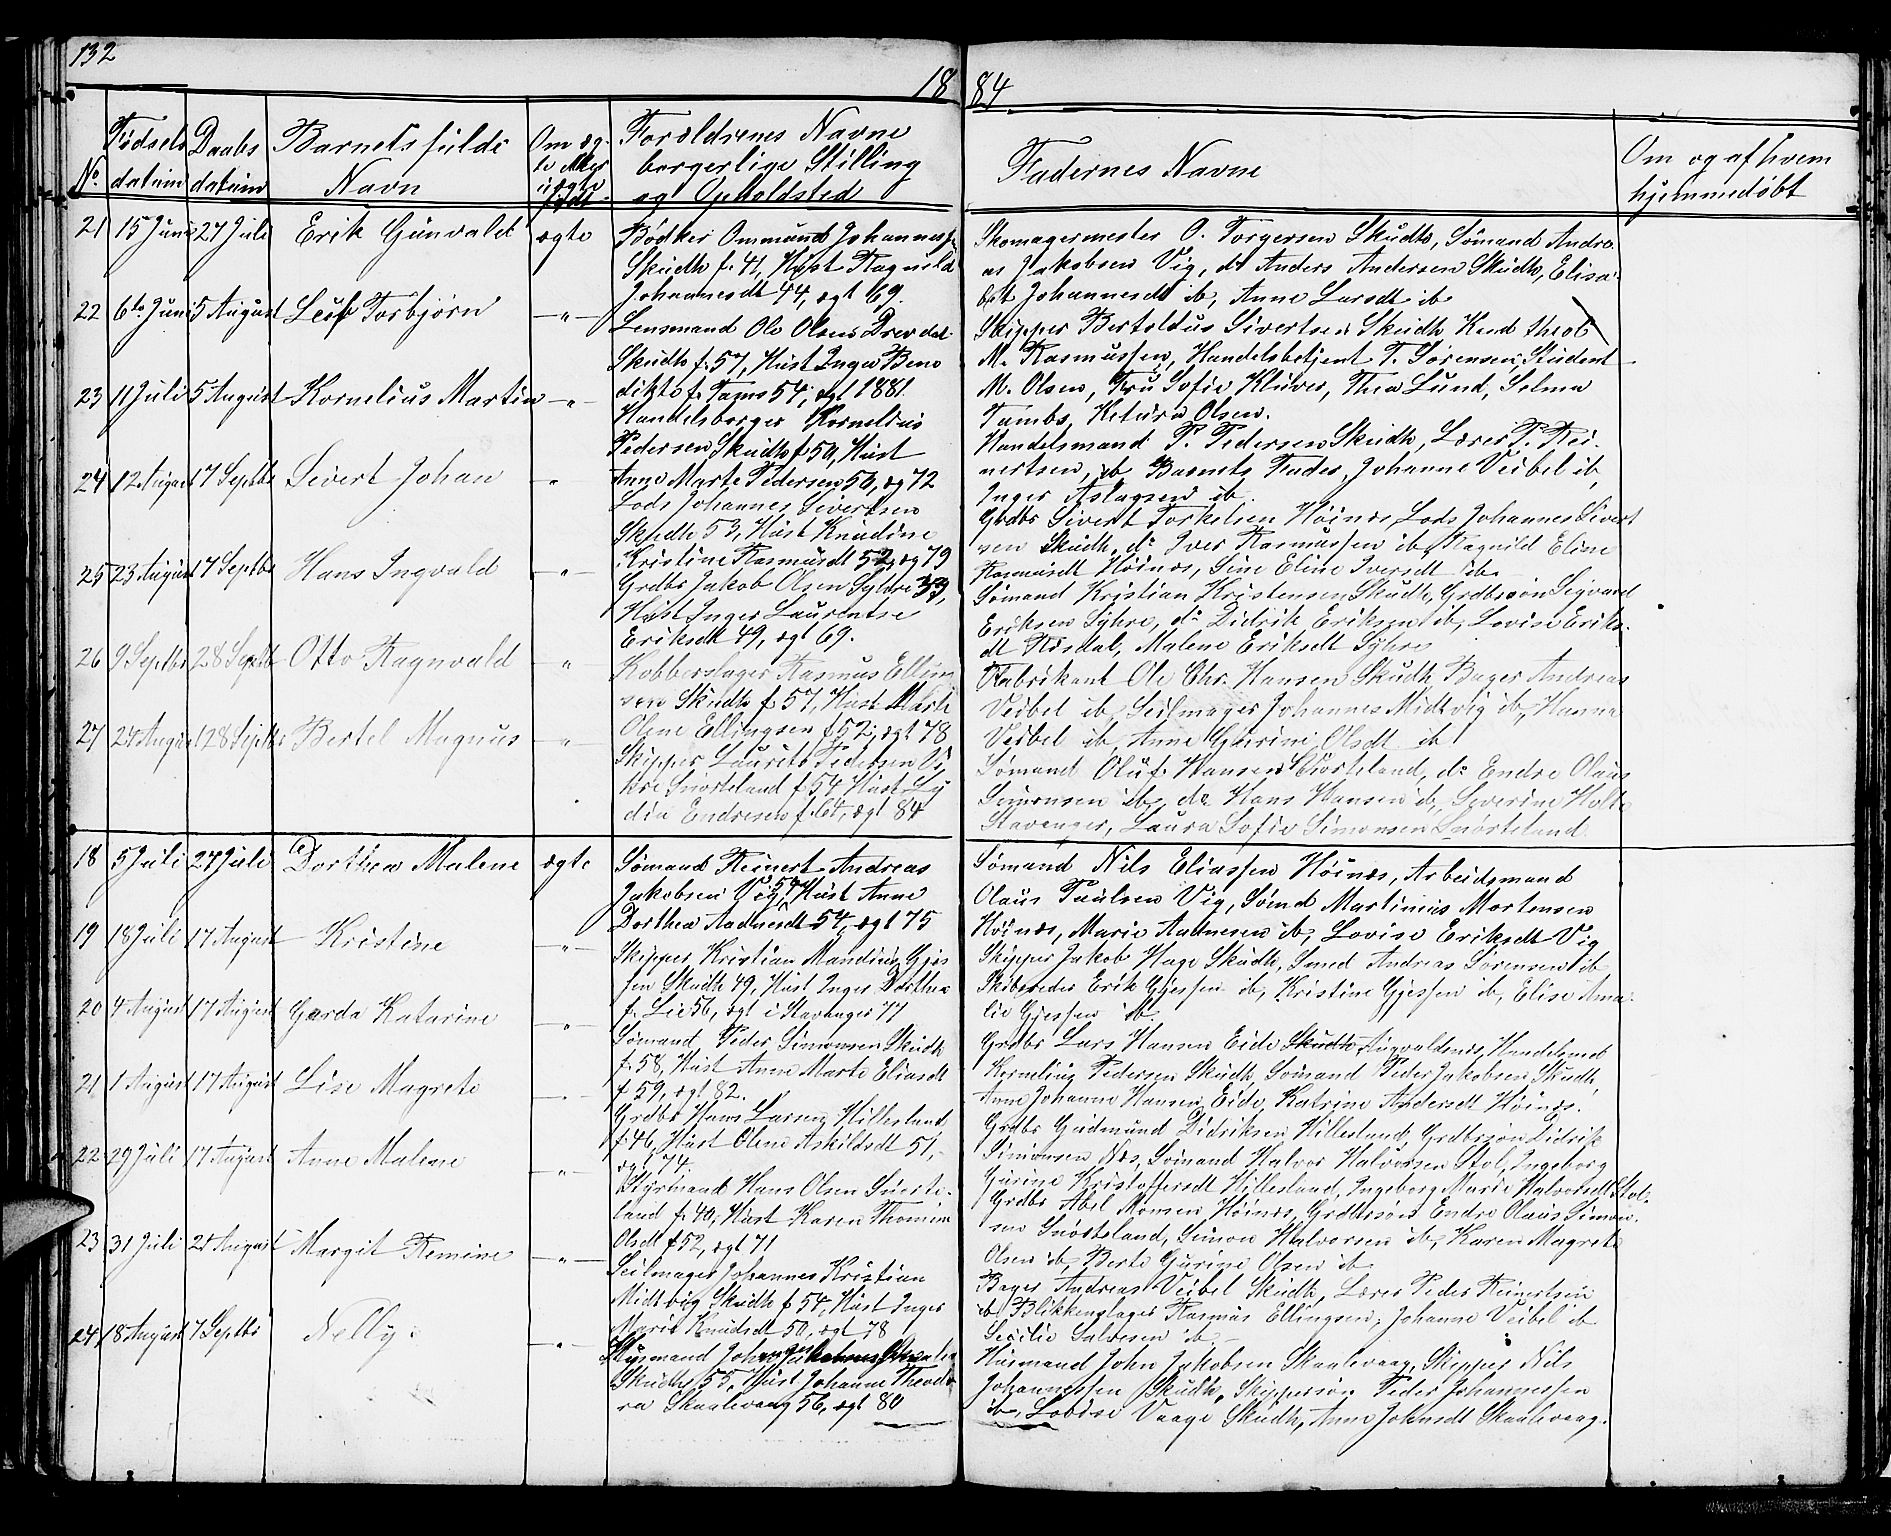 132
18 84
No. Fødsels datum Daabs datum Barnets fulde Navn Om ægte eller uægte født Forældrenes Navne borgerlige Stilling og Opholdsted Fadernes Navne Om og af hvem hjemmedøbt
21 15 Juni 27 Juli Erik Gunvald ægte
Bødker Ommund Johannes
Skudh f. 41, Hust Ragnild
Johannesdt 44, ægt 69.
Skomagermester O. Torgersen Skudh, Sømand Andre
as Jakobsen Vig, do Anders Andersen Skudh, Elisa
bet Johannesdt ib, Anne Larsdt ib
22 6te Juni 5 August Leif Torbjørn -"-
Lensmand Ole Olsen Drevdal
Skudh f. 57, Hust Inga Bene
dikte f. Tams 54, ægt 1881.
Skipper Bertoldus Sivertsen Skudh Kand theol
M. Rasmussen, Handelsbetjent T. Sørensen, Student
M. Olsen, Fru Sofie Klüver, Thea Lund, Selma
Tambs, Ketura Olsen.
23 11 Juli 5 August Kornelius Martin -"-
Handelsborger Kornelius
Pedersen Skudh f 50, Hust
Anne Marte Pedersen 50, æg 72
Handelsmand P. Pedersen Skudh, Lærer P. Rei-
nertsen, ib Barnets Fader, Johanne Veibel ib,
Inger Aslagsen ib.
24 12 August 7 Septbr Sivert Johan "
Lods Johannes Sivertsen
Skudh 53, Hust Knudine
Kristine Rasmusdt 52, æg 79
Grdbr Sivert Torkelsen Høines, Lods Johannes Sivert
sen Skudh, do Iver Rasmussen ib, Ragnild Eline
Rasmusdt Høines, Sine Eline Iversdt ib.
25 23 August 7 Septbr Hans Ingvald -"-
Grdbr Jakob Olsen Syhre 33,
Hust Inger Laurentse
Eriksdt 49, ægt 69.
Sømand Kristian Kristensen Skudh, Grdbrsøn Sigvard
Eriksen Syhre, do Didrik Eriksen ib, Lovise Eriks-
dt Risdal, Malene Eriksdt Syhre
26 9 Septbr 28 Septbr Otto Ragnvald -"-
Kobberslager Rasmus Elling
sen Skudh f. 57, Hust Marte
Oline Ellingsen f 52, ægt 78
Fabrikant Ole Chr. Hansen Skudh Bager Andreas
Veibel ib, Seilmager Johannes Midtvig ib, Hanna
Veibel ib, Anne Gurine Olsdt ib
27 24 August 28 Septbr Bertel Magnus -"-
Skipper Laurits Pedersen Vi
kre Snørteland f 54 Hust Ly
dia Endresen f. 64, ægt 84
Sømand Oluf Hansen Snørteland, do Endre Olaus
Simonsen ib, do Hans Hansen ib, Severine Holte
Stavanger, Laura Sofie Simonsen Snørteland
18 5 Juli 27 Juli Dorthea Malene ægte
Sømand Reinert Andreas
Jakobsen Vig, 54, Hust Anne
Dorthea Aadnesdt 54, ægt 75
Sømand Nils Eliassen Høines, Arbeidsmand
Olaus Paulsen Vig, Sømd Martinius Mortensen
Høines, Marie Aadnesen ib, Lovise Eriksdt Vig
19 18 Juli 17 August Kristine -"-
Skipper Kristian Mandius Gjes
sen Skudh 49, Hust Inger Dorthea
f. Lie 56, ægt i Stavanger 77
Skipper Jakob Hage Skudh, Smed Andreas Sørensen ib,
Skibsreder Erik Gjessen ib, Kristine Gjessen ib, Elise Ama-
lie Gjessen ib.
20 4 August 17 August Gerda Katarine -"-
Sømand Peder Simonsen Skudh
f. 58, Hust Anne Marte Eliasdt
f 59, ægt 82.
Grdbr Lars Hansen Eide Augvaldsnes, Handelsmd
Kornelius Pedersen Skudh, Sømand Peder Jakobsen Skudh,
Anne Johanne Hansen Eide, Katrine Andersdt Høines.
21 1 August 17 August Lise Magrete -"-
Grdbr Hans Larsen Hillesland,
f. 46, Hust Oline Askildsdt 51,
ægt 74.
Grdbr Gudmund Didriksen Hillesland, Grdbrsøn Didrik
Simonsen Næs, Sømand Halvor Halvorsen Stol, Ingeborg
Gurine Kristoffersdt Hillesland, Ingeborg Marie Halvorsdt Stol.
22 29 Juli 17 August Anne Malene -"-
Styrmand Hans Olsen Snørte-
land f. 40, Hust Karen Thomine
Olsdt f 52, ægt 71
Grdbr Abel Monsen Høines, Grdbrsøn Endre Olaus Simon-
sen Snørteland, Simon Halvorsen ib, Karen Magrete
Olsen ib, Berte Gurine Olsen ib
23 31 Juli 24 August Margit Remine -"-
Seilmager Johannes Kristian
Midtvig Skudh f 54, Hust Inger
Marie Knudsdt 50, ægt 78
Bager Andreas Veibel Skudh, Lærer Peder Reinertsen
ib Blikkenslager Rasmus Ellingsen, Johanne Veibel ib
Secilie Salvesen ib
24 18 August 7 Septbr Nelly -"-
Skudh 55, Hust Johanne Theodo
ra Skaalevaag 56, ægt 80
Husmand John Jakobsen Skaalevaag, Skipper Nils
Johannessen Skudh, Skippersøn Peder Johannessen
ib, Lovise Vaage Skudh, Anne Johnsdt Skaalevaag.